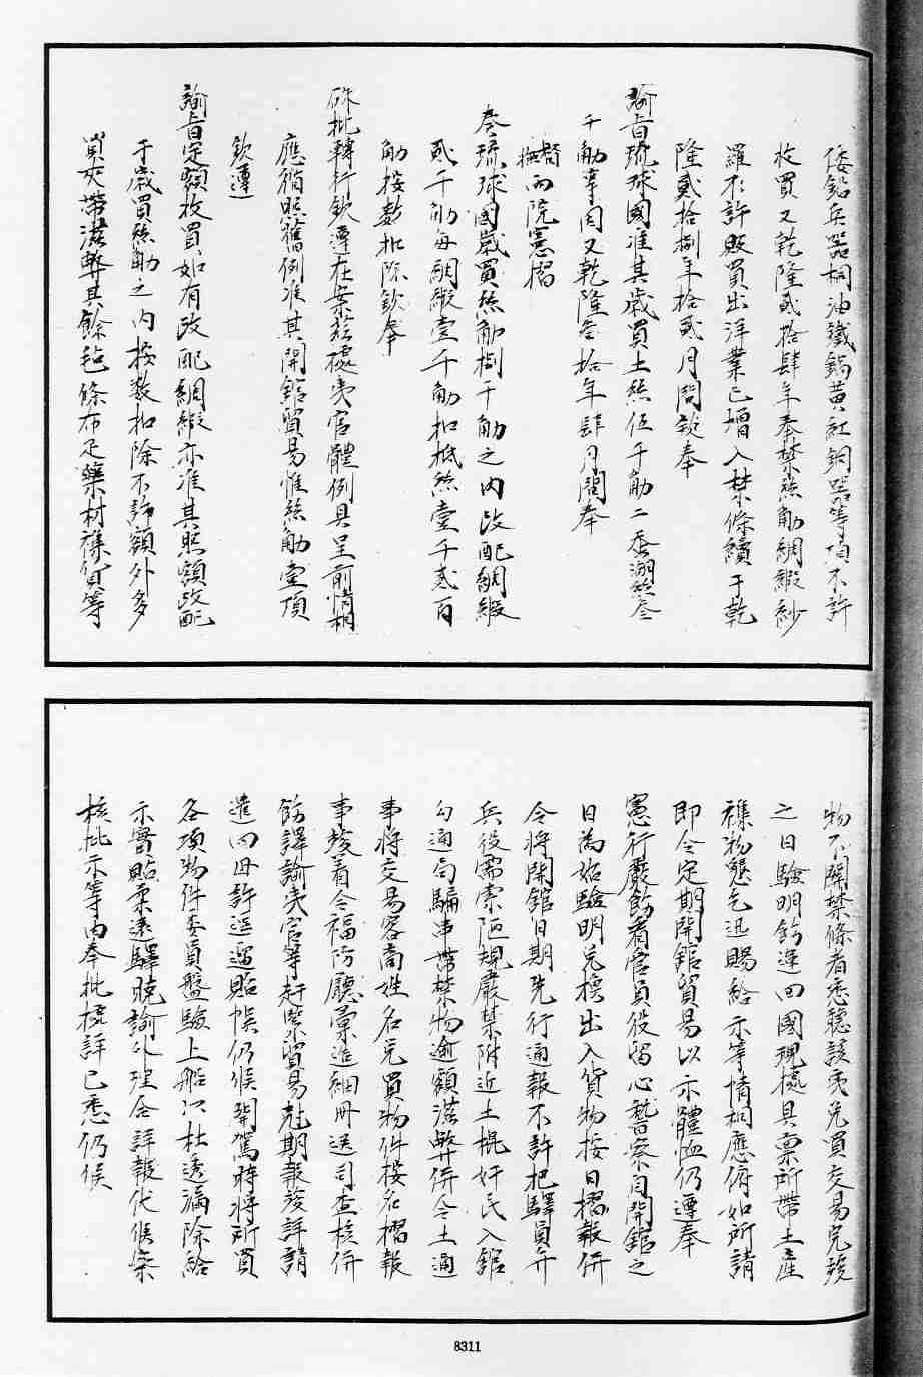 倭鉛兵器桐油鐵鍋黃紅銅器等項不許
收買又乾隆貳拾肆年奉禁絲觔綢緞紗
羅不許販買出洋業已增入禁條續于乾
隆貳拾捌年拾貳月間欽奉
諭旨琉球國准其歲買土絲伍千觔二蚕湖絲叁
千觔等因又乾隆叁拾年肆月間奉
督撫兩院憲摺
奏琉球國歲買絲觔捌千觔之內改配綢緞
貳千觔每綢緞壹千觔扣抵絲壹千貳百
觔按數扣除欽奉
硃批轉行欽遵在案茲據夷官體例具呈前情相
應循照舊例准其開館貿易惟絲觔壹項
欽遵
諭旨定額收買如有改配綢緞亦准其照額改配
于歲買絲觔之內按数扣除不許額外多
買夾帶滋弊其餘毡條布疋藥材襍貨等
物不關禁條者悉聽該夷兌買交易完竣
之日驗明飭運回國現據具稟所帶土產
襍物懇乞迅賜給示等情相應俯如所請
即令定期開館貿易以示體恤仍遵奉
憲行嚴飭看官員役留心稽察自開館之
日為始驗明兌擡出入貨物按日摺報併
令將開館日期先行通報不許把驛員弁
兵役需索陋規嚴禁附近土棍奸民入館
勾通局騙串帶禁物逾額滋弊併令土通
事將交易客商姓名兌買物件按名摺報
事竣着令福防廳彙造細冊送司查核併
飭譯諭夷官等赶緊貿易尅期報竣詳請
遣回毋許逗遛貽悞仍候開駕時將所買
各項物件委員盤驗上船以杜透漏除給
示實貼柔遠驛曉諭外理合詳報伏候察
核批示等由奉批據詳已悉仍候
8311